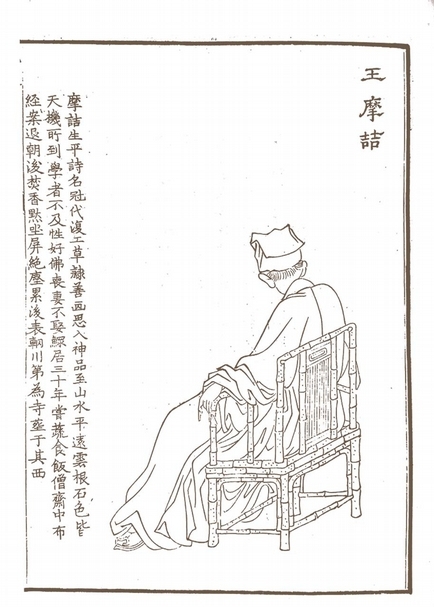 王摩詰
摩詰生平詩名冠代復工草隸善画思入神品至山水平遠雲根石色皆
天機所到學者不及性好佛喪妻不娶鰥居三十年嘗蔬食飯僧齋中布
経案退朝後焚香黙坐屏絶塵累後表輞川第為寺塟于其西